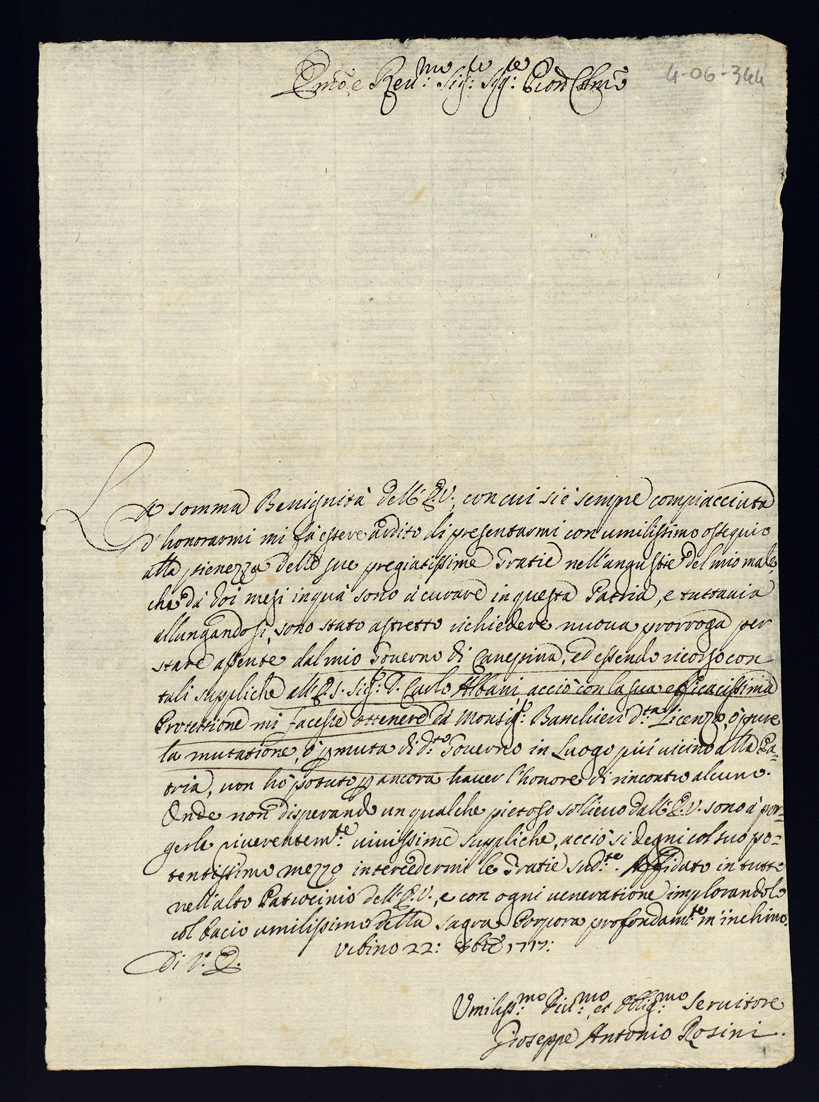 Em̃o, e Reu:mo Sig:re Sig:re Pron Col̃mo
4-06-344
La somma Benignità dell'E.V., con cui si è sempre compiacciuta
d'honorarmi mi fà essere ardito di presentarmi con umilissimo ossequio
alla pienezza delle sue pregiatissime Gratie nell'angustie del mio male,
che dà doi mesi in quà sono à curare in questa Patria, e tuttauia
allungandosi, sono stato astretto richiedere nuoua prorroga per
stare assente dal mio Gouerno di Canepina, ed essendo ricorso con
tali suppliche all'E.S. Sig: D. Carlo Albani acciò con la sua efficacissima
Protettione mi facesse ottenere dà Monsig:r Banchieri d:ta Licenza, ò pure
la mutatione, ò pmuta di d:to Gouerno in Luogo più vicino alla Pa-
tria, non hò potuto p ancora hauer l'honore di rincontro alcuno.
Onde non disperando un qualche pietoso sollieuo dall'E.V. sono à por-
gerle riuerentem:te viuissime suppliche, acciò si degni col suo po-
tentissimo mezzo intercedermi le Gratie sud:te. Affidato in tutto
nell'alto Patrocinio dell'E.V., e con ogni veneratione implorandolo
col bacio umilissimo della Sagra Porpora profondam:te m'inchino.
Vrbino 22: 1717:
Di V. E.
Vmiliss:mo Diu:mo, et Oblig:mo Seruitore
Gioseppe Antonio Rosini.